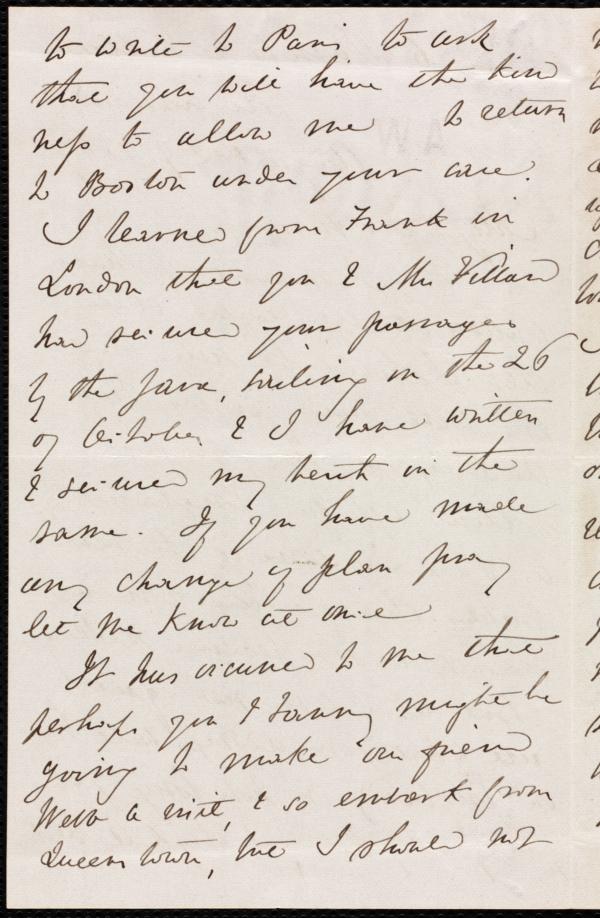 to write to Paris to ask
that you will have the kind
ness to allow me to return
to Boston under your care.
I learned from Frank in
London that you & Mr Villard
had secured your passages
by the Java, sailing on the 26
of October, & I have written
& secured my berth in the
same. If you have made
any change of plan pray
let me know at once
It has occurred to me that
perhaps you & Fanny might be
going to make our friend
Webb a visit, & so embark from
Queenstown, but I should not